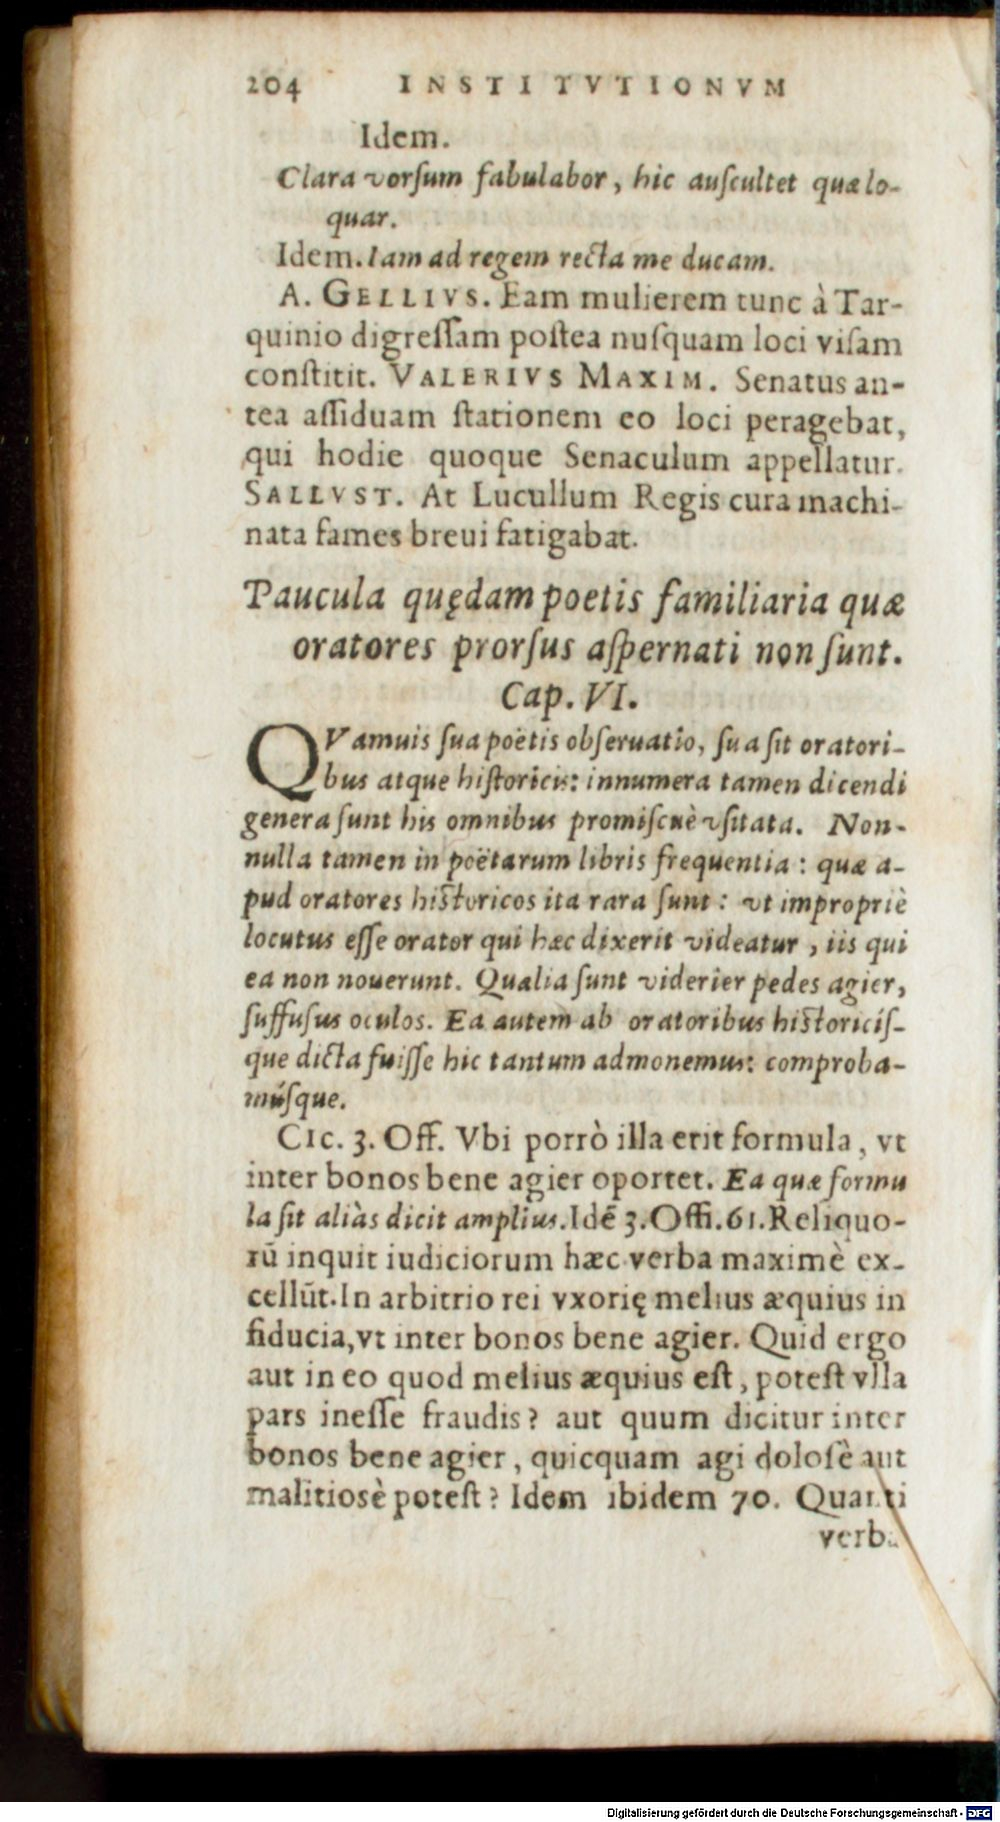 204 INSTITVTIONVM
Idem.
Clara vorſum fabulabor, hic auſcultet quæ lo-
quar.
Idem. Iam ad regem recta me ducam.
A. GELLIVS. Eam mulierem tunc à Tar-
quinio digreſſam poſtea nuſquam loci viſam
conſtitit. VALERIVS MAXIM. Senatus an-
tea aſſiduam ſtationem eo loci peragebat,
qui hodie quoque Senaculum appellatur.
SALLVST. At Lucullum Regis cura machi-
nata fames breui fatigabat.
Paucula quędam poetis familiaria quæ
oratores prorſus aſpernati non ſunt.
Cap. VI.
QVamuis ſua poëtis obſeruatio, ſua ſit oratori-
bus atque hiſtoricis: innumera tamen dicendi
genera ſunt his omnibus promiſcuè vſitata. Non-
nulla tamen in poëtarum libris frequentia: quæ a-
pud oratores hiſtoricos ita rara ſunt: vt impropriè
locutus eſſe orator qui hæc dixerit videatur, iis qui
ea non nouerunt. Qualia ſunt viderier pedes agier,
ſuffuſus oculos. Ea autem ab oratoribus hiſtoriciſ-
que dicta fuiſſe hic tantum admonemus: comproba-
múſque.
CIC. 3. Off. Vbi porrò illa erit formula, vt
inter bonos bene agier oportet. Ea quæ formu
la ſit aliàs dicit amplius. Idē 3. Offi. 61. Reliquo-
rū inquit iudiciorum hæc verba maximè ex-
cellūt. In arbitrio rei vxorię melius æquius in
fiducia, vt inter bonos bene agier. Quid ergo
aut in eo quod melius æquius eſt, poteſt vlla
pars ineſſe fraudis? aut quum dicitur inter
bonos bene agier, quicquam agi doloſè aut
malitiosè poteſt? Idem ibidem 70. Quanti
verba
Digitalisierung gefördert durch die Deutsche Forschungsgemeinschaft - DFG